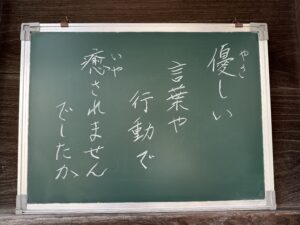 優しい
言葉や
行動で
癒されません
でしたか
やさ
いや